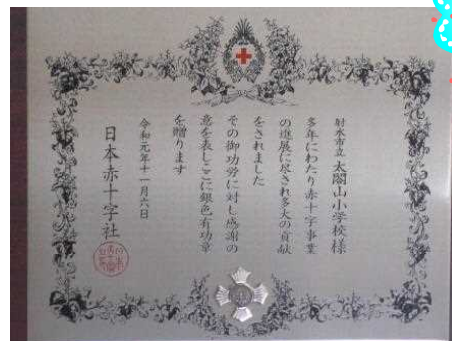 射水市立 太閤山小学校様
多年にわたり赤十字事業
の進展に尽され多大の貢献
をされました
その御功労に対し感謝の
意を表しここに銀色有功章
を贈ります
令和元年十一月六日
日本赤十字社